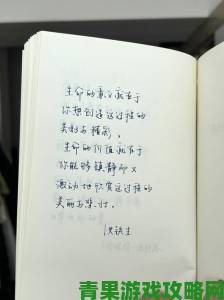 生命的意义就在于
你能创造这过程的
美好与精彩，
生命的价值就在于
你能够镇静而又
激动地欣赏这过程的
美丽与悲壮。
史铁生
青果游戏攻略网